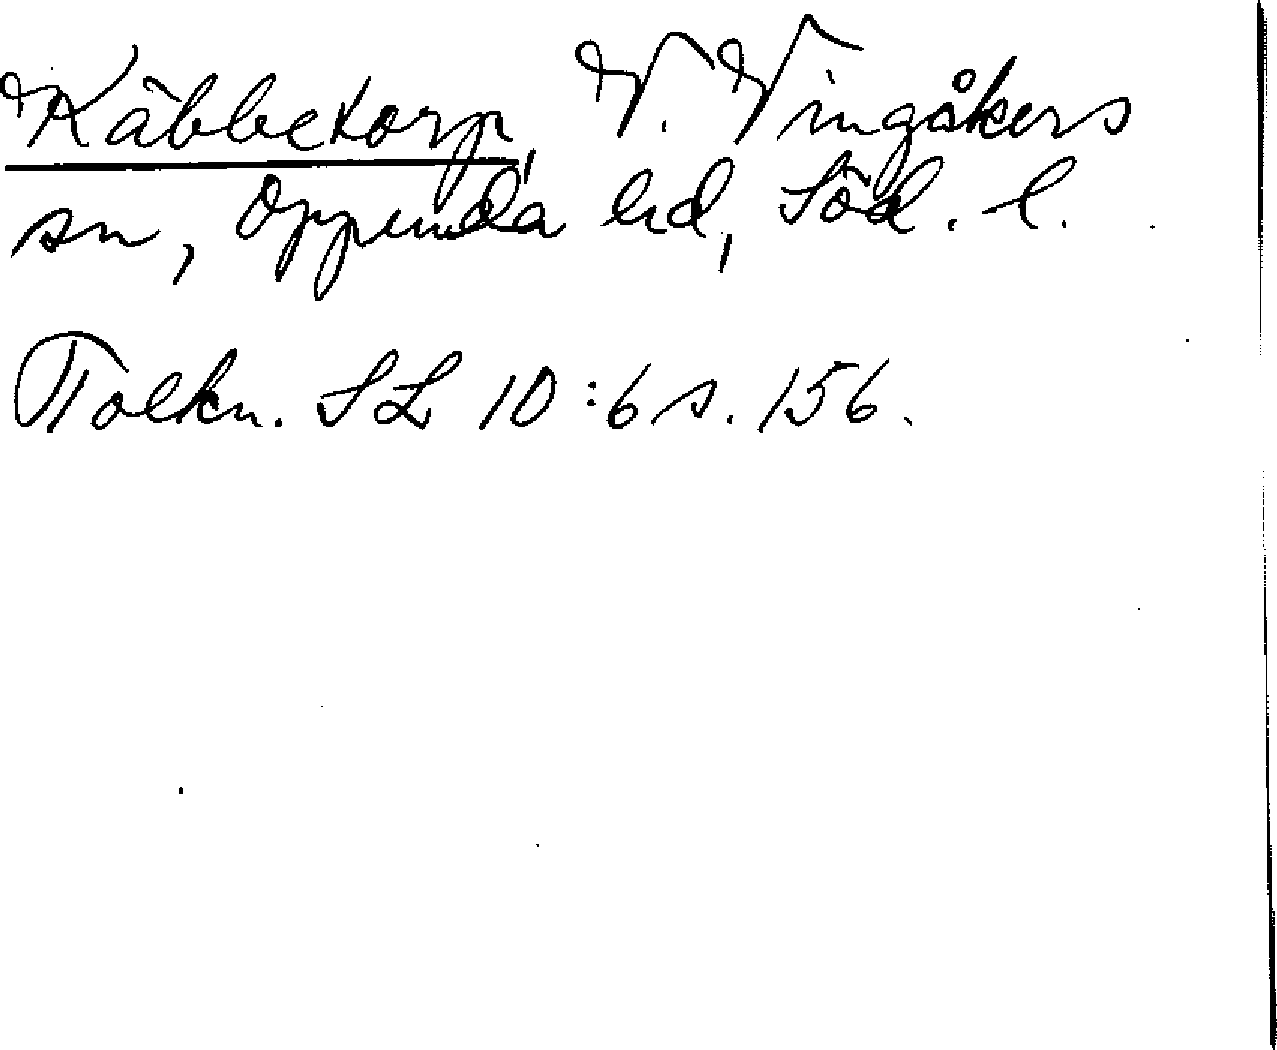 Käbbetorp, V. Vingåkers
sn, Oppunda hd, Söd. l.
Tolkn. SL 10:6 s. 156.